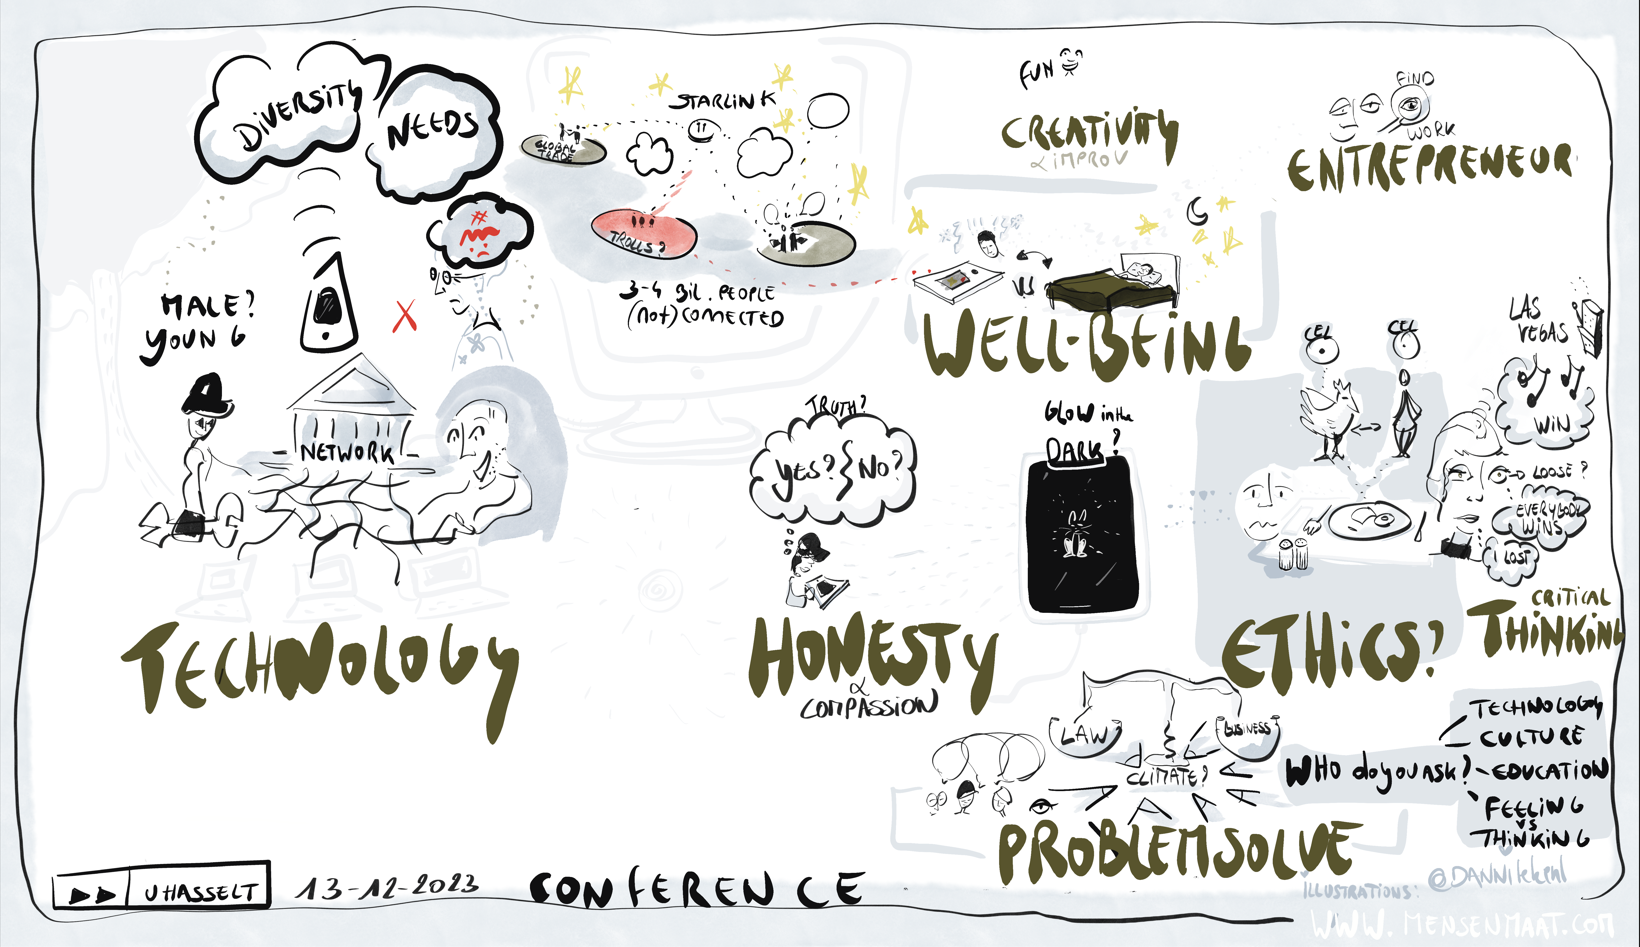 DIVERSITY
NEEDS
#
MALE?
YOUNG
NETWORK
TECHNOLOGY
STARLINK
GLOBAL
TRADE
TROLLS?
3-4 BIL. PEOPLE
(not) CONNECTED
FUN
CREATIVITY
& IMPROV
FIND
WORK
ENTREPRENEUR
VS
WELL-BEING
TRUTH?
YES? } NO?
HONESTY
&
COMPASSION
GLOW in the
DARK?
CEL
CEL
ETHICS?
LAS
VEGAS
WIN
LOOSE?
EVERYBODY
WINS
LOST
CRITICAL
THINKING
LAW
BUSINESS
CLIMATE?
PROBLEMSOLVE
WHO do you ask?
TECHNOLOGY
CULTURE
EDUCATION
FEELING
VS
THINKING
UHASSELT
13-12-2023
CONFERENCE
ILLUSTRATIONS:
WWW.MENSENMAAT.COM